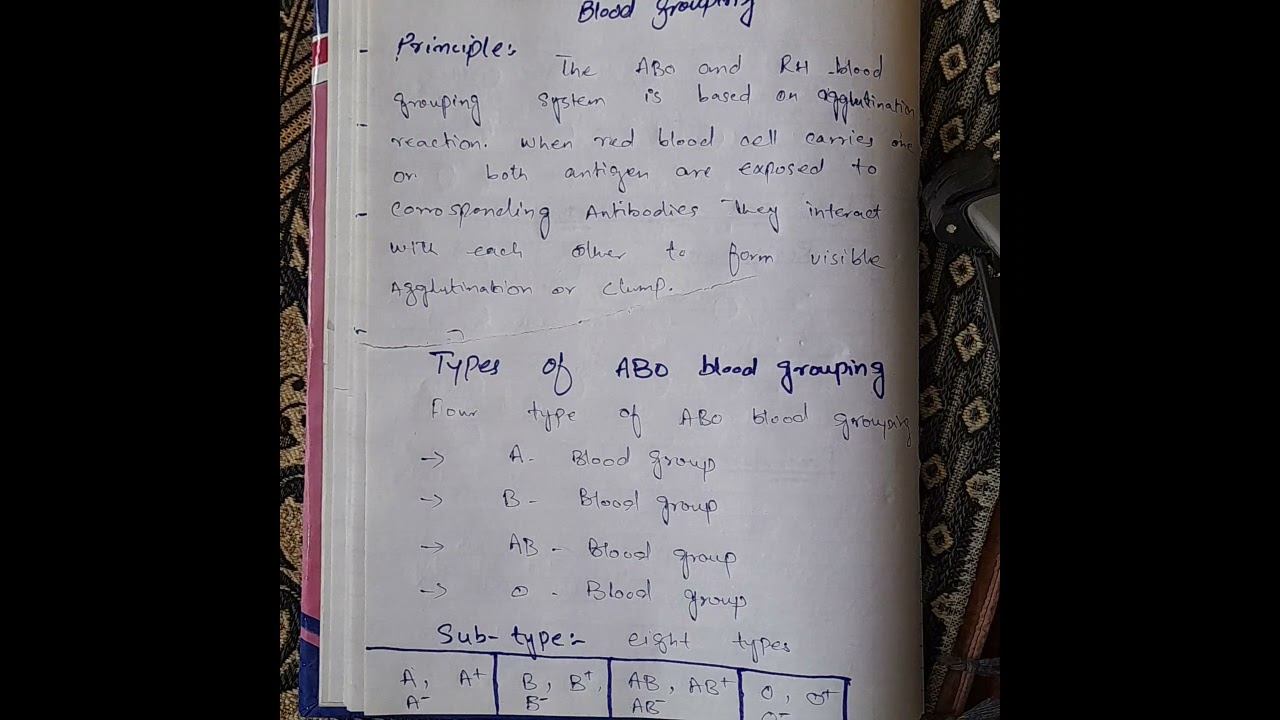 Blood grouping
Principle:-
The ABO and RH blood
grouping system is based on agglutination
reaction. When red blood cell carries one
or both antigen are exposed to
Corrosponding Antibodies They interact
with each other to form visible
Agglutination or Clump.
Types of ABO blood grouping
Four type of ABO blood grouping
→ A - Blood group
→ B - Blood group
→ AB - Blood group
→ O - Blood group
Sub-type:- eight types
A, A+ B, B+, AB, AB+ O, O+
A- B- AB- O-